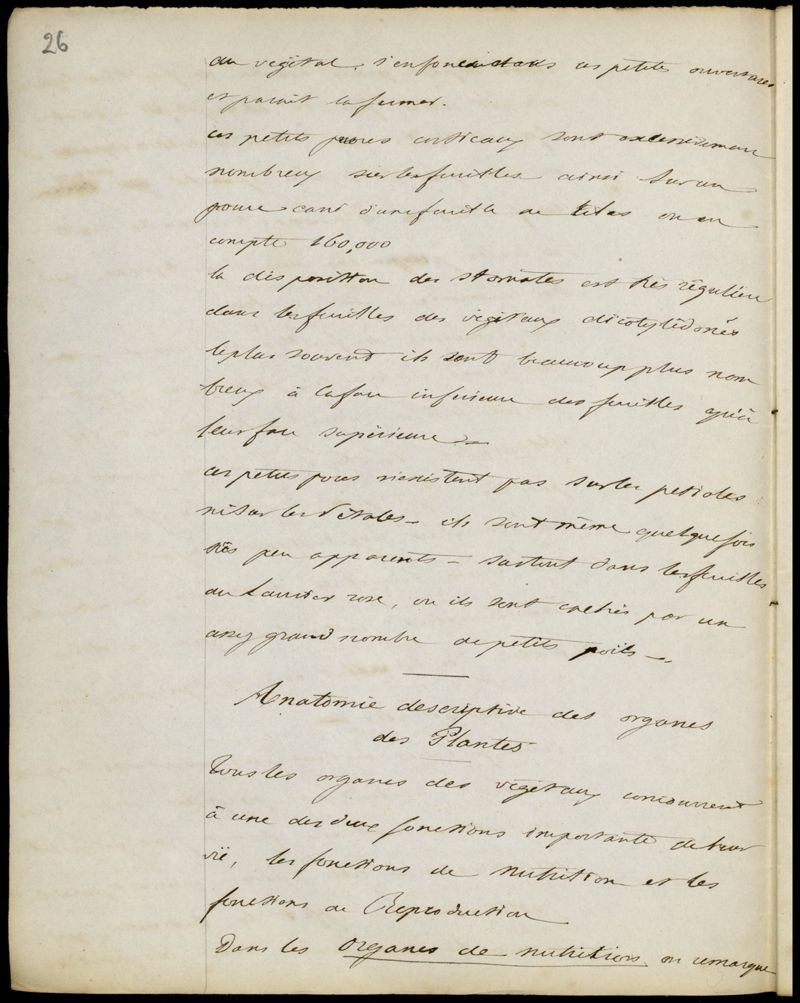 26
du végétal, s'enfonce dans ces petites ouvertures
et parait la fermer.
ces petits pores corticaux sont excessivement
nombreux sur les feuilles ainsi sur un
pouce carré d'une feuille de lilas on en
compte 160,000
la disposition des stomates est très régulière
dans les feuilles des végétaux dicotylédonés
le plus souvent ils sont beaucoup plus nom
breux à la face inférieure des feuilles qu'à
leur face supérieure
ces petits pores n'existent pas sur les petioles
ni sur les Pétales - ils sont même quelquefois
très peu apparents - surtout dans les feuilles
du Laurier rose, ou ils sont cachés par un
assez grand nombre de petits poils -.
Anatomie descriptive des organes
des Plantes
Tous les organes des végétaux concourrent
à une des deux fonctions importante de leur
vie, les fonctions de nutrition et les
fonctions de Reproduction
Dans les organes de nutritions on remarque